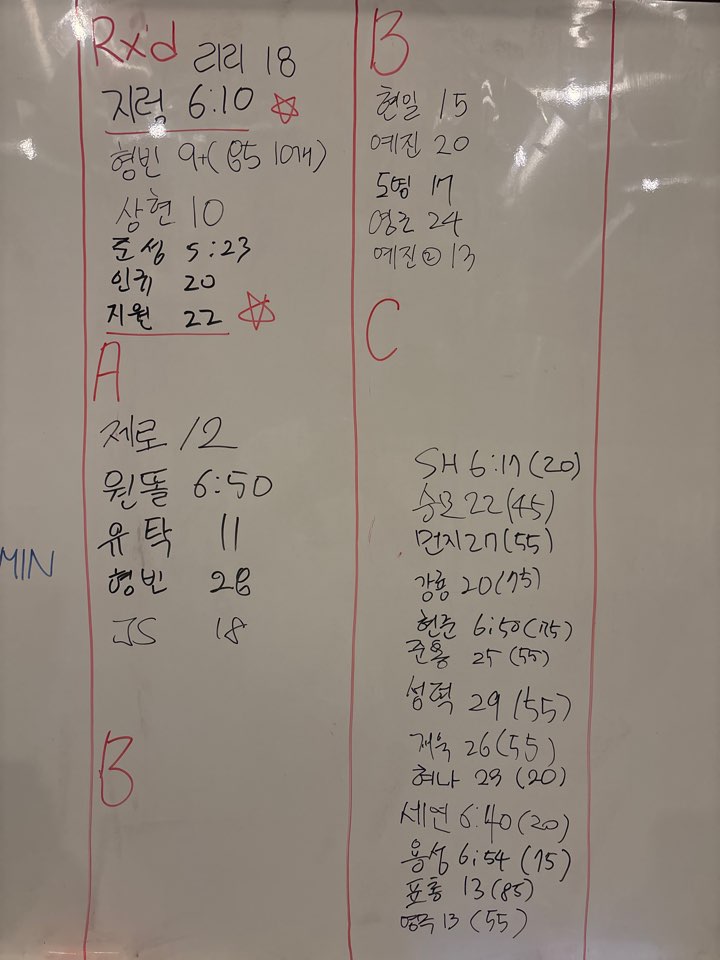 Rx'd 리리 18
지럭 6:10
형빈 9+(85 10개)
상현 10
준성 5:23
인귀 20
지원 22
A
제로 12
원똘 6:50
유탁 11
형빈 28
JS 18
B
MIN
B
현일 15
예진 20
도영 17
영은 24
예진② 13
C
SH 6:17 (20)
승요 22 (45)
먼지 27 (55)
강룡 20 (75)
현준 6:50 (75)
준홍 25 (55)
성덕 29 (55)
재욱 26 (55)
혀나 29 (20)
세연 6:40 (20)
용성 6:54 (75)
표홍 13 (85)
영주 13 (55)